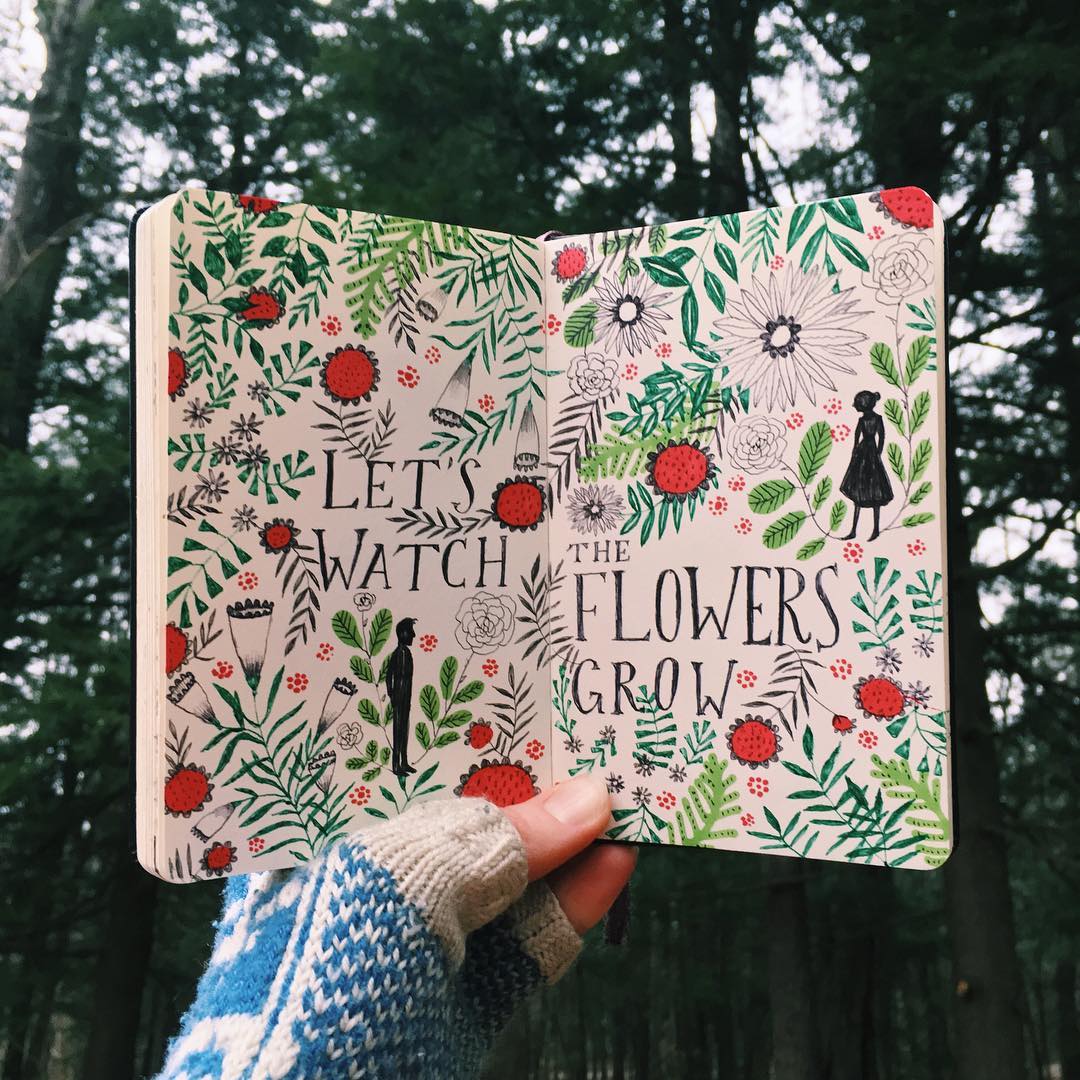 LET'S
WATCH
THE
FLOWERS
GROW